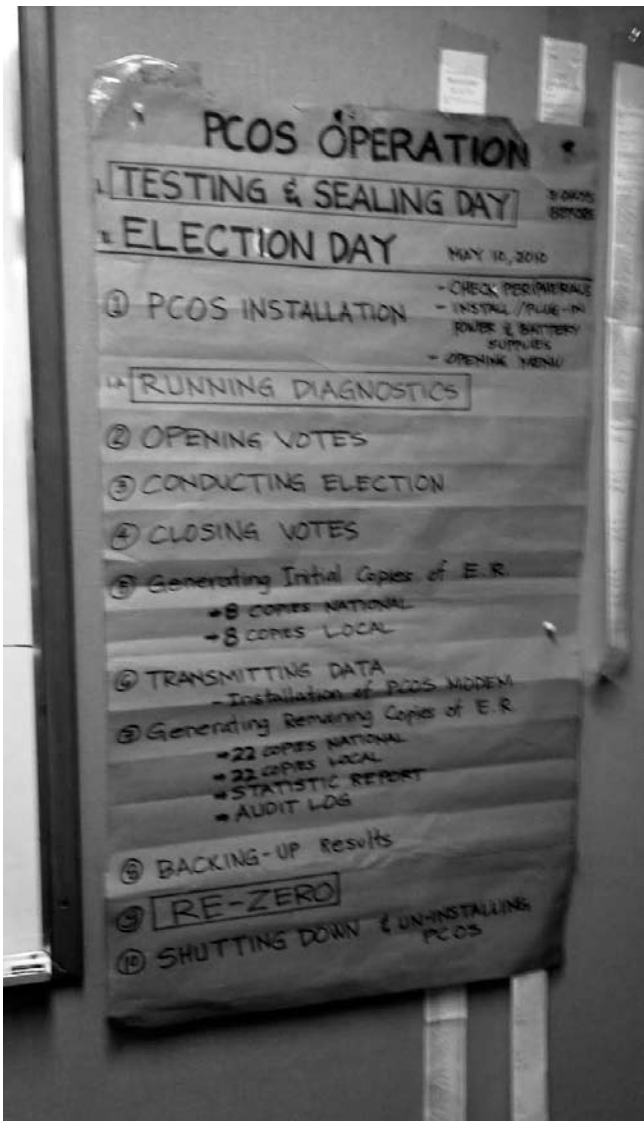 PCOS OPERATION
I. TESTING & SEALING DAY
3 DAYS
BEFORE
II. ELECTION DAY MAY 10, 2010
① PCOS INSTALLATION
- CHECK PERIPHERALS
- INSTALL / PLUG-IN
POWER & BATTERY
SUPPLIES
- OPENING MENU
1.A RUNNING DIAGNOSTICS
② OPENING VOTES
③ CONDUCTING ELECTION
④ CLOSING VOTES
⑤ Generating Initial Copies of E.R.
→ 8 COPIES NATIONAL
→ 8 COPIES LOCAL
⑥ TRANSMITTING DATA
- Installation of PCOS MODEM
⑦ Generating Remaining Copies of E.R.
→ 22 COPIES NATIONAL
→ 22 COPIES LOCAL
→ STATISTIC REPORT
→ AUDIT LOG
⑧ BACKING-UP Results
⑨ RE-ZERO
⑩ SHUTTING DOWN & UN-INSTALLING
PCOS